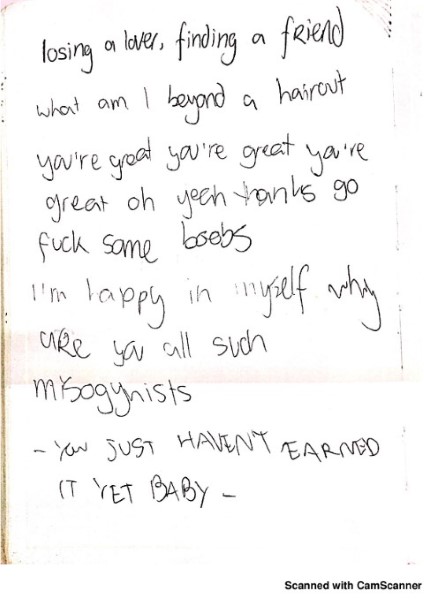 losing a lover, finding a friend
what am I beyond a haircut
you're great you're great you're
great oh yeah thanks go
fuck some boobs
I'm happy in myself why
are you all such
misogynists
- YOU JUST HAVEN'T EARNED
IT YET BABY -
Scanned with CamScanner